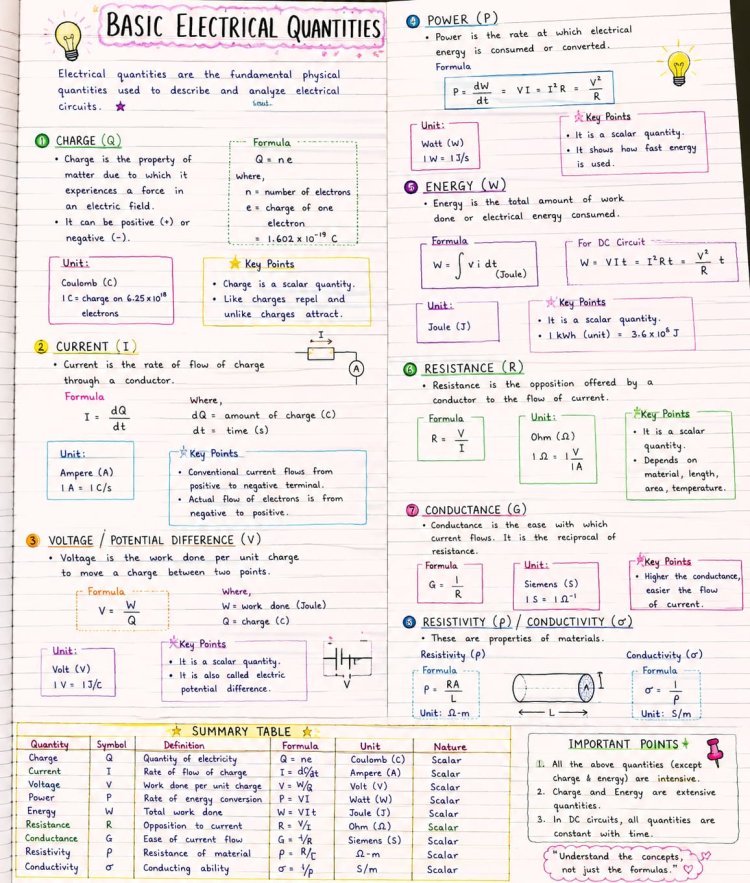 BASIC ELECTRICAL QUANTITIES
Electrical quantities are the fundamental physical
quantities used to describe and analyze electrical
circuits.
① CHARGE (Q)
• Charge is the property of
matter due to which it
experiences a force in
an electric field.
• It can be positive (+) or
negative (-).
Formula
Q = ne
where,
n = number of electrons
e = charge of one
electron
= 1.602 x 10⁻¹⁹ C
Unit:
Coulomb (C)
1 C = charge on 6.25 x 10¹⁸
electrons
Key Points
• Charge is a scalar quantity.
• Like charges repel and
unlike charges attract.
② CURRENT (I)
• Current is the rate of flow of charge
through a conductor.
I
A
Formula
I = dQ/dt
Where,
dQ = amount of charge (C)
dt = time (s)
Unit:
Ampere (A)
1 A = 1 C/s
Key Points
• Conventional current flows from
positive to negative terminal.
• Actual flow of electrons is from
negative to positive.
③ VOLTAGE / POTENTIAL DIFFERENCE (V)
• Voltage is the work done per unit charge
to move a charge between two points.
Formula
V = W/Q
Where,
W = work done (Joule)
Q = charge (C)
Unit:
Volt (V)
1 V = 1 J/C
Key Points
• It is a scalar quantity.
• It is also called electric
potential difference.
V
④ POWER (P)
• Power is the rate at which electrical
energy is consumed or converted.
Formula
P = dW/dt = VI = I²R = V²/R
Unit:
Watt (W)
1 W = 1 J/s
Key Points
• It is a scalar quantity.
• It shows how fast energy
is used.
⑤ ENERGY (W)
• Energy is the total amount of work
done or electrical energy consumed.
Formula
W = ∫ v i dt
(Joule)
For DC Circuit
W = VIt = I²Rt = V²/R t
Unit:
Joule (J)
Key Points
• It is a scalar quantity.
• 1 kWh (unit) = 3.6 x 10⁶ J
RESISTANCE (R)
• Resistance is the opposition offered by a
conductor to the flow of current.
Formula
R = V/I
Unit:
Ohm (Ω)
1 Ω = 1 V/1 A
Key Points
• It is a scalar
quantity.
• Depends on
material, length,
area, temperature.
⑦ CONDUCTANCE (G)
• Conductance is the ease with which
current flows. It is the reciprocal of
resistance.
Formula
G = 1/R
Unit:
Siemens (S)
1 S = 1 Ω⁻¹
Key Points
• Higher the conductance,
easier the flow
of current.
RESISTIVITY (ρ) / CONDUCTIVITY (σ)
• These are properties of materials.
Resistivity (ρ)
Formula
ρ = RA/L
Unit: Ω-m
A
L
Conductivity (σ)
Formula
σ = 1/ρ
Unit: S/m
SUMMARY TABLE
Quantity Symbol Definition Formula Unit Nature
Charge Q Quantity of electricity Q = ne Coulomb (C) Scalar
Current I Rate of flow of charge I = dQ/dt Ampere (A) Scalar
Voltage V Work done per unit charge V = W/Q Volt (V) Scalar
Power P Rate of energy conversion P = VI Watt (W) Scalar
Energy W Total work done W = VIt Joule (J) Scalar
Resistance R Opposition to current R = V/I Ohm (Ω) Scalar
Conductance G Ease of current flow G = 1/R Siemens (S) Scalar
Resistivity ρ Resistance of material ρ = R/ Ω-m Scalar
Conductivity σ Conducting ability σ = 1/ρ S/m Scalar
IMPORTANT POINTS
1. All the above quantities (except
charge & energy) are intensive.
2. Charge and Energy are extensive
quantities.
3. In DC circuits, all quantities are
constant with time.
"Understand the concepts,
not just the formulas."